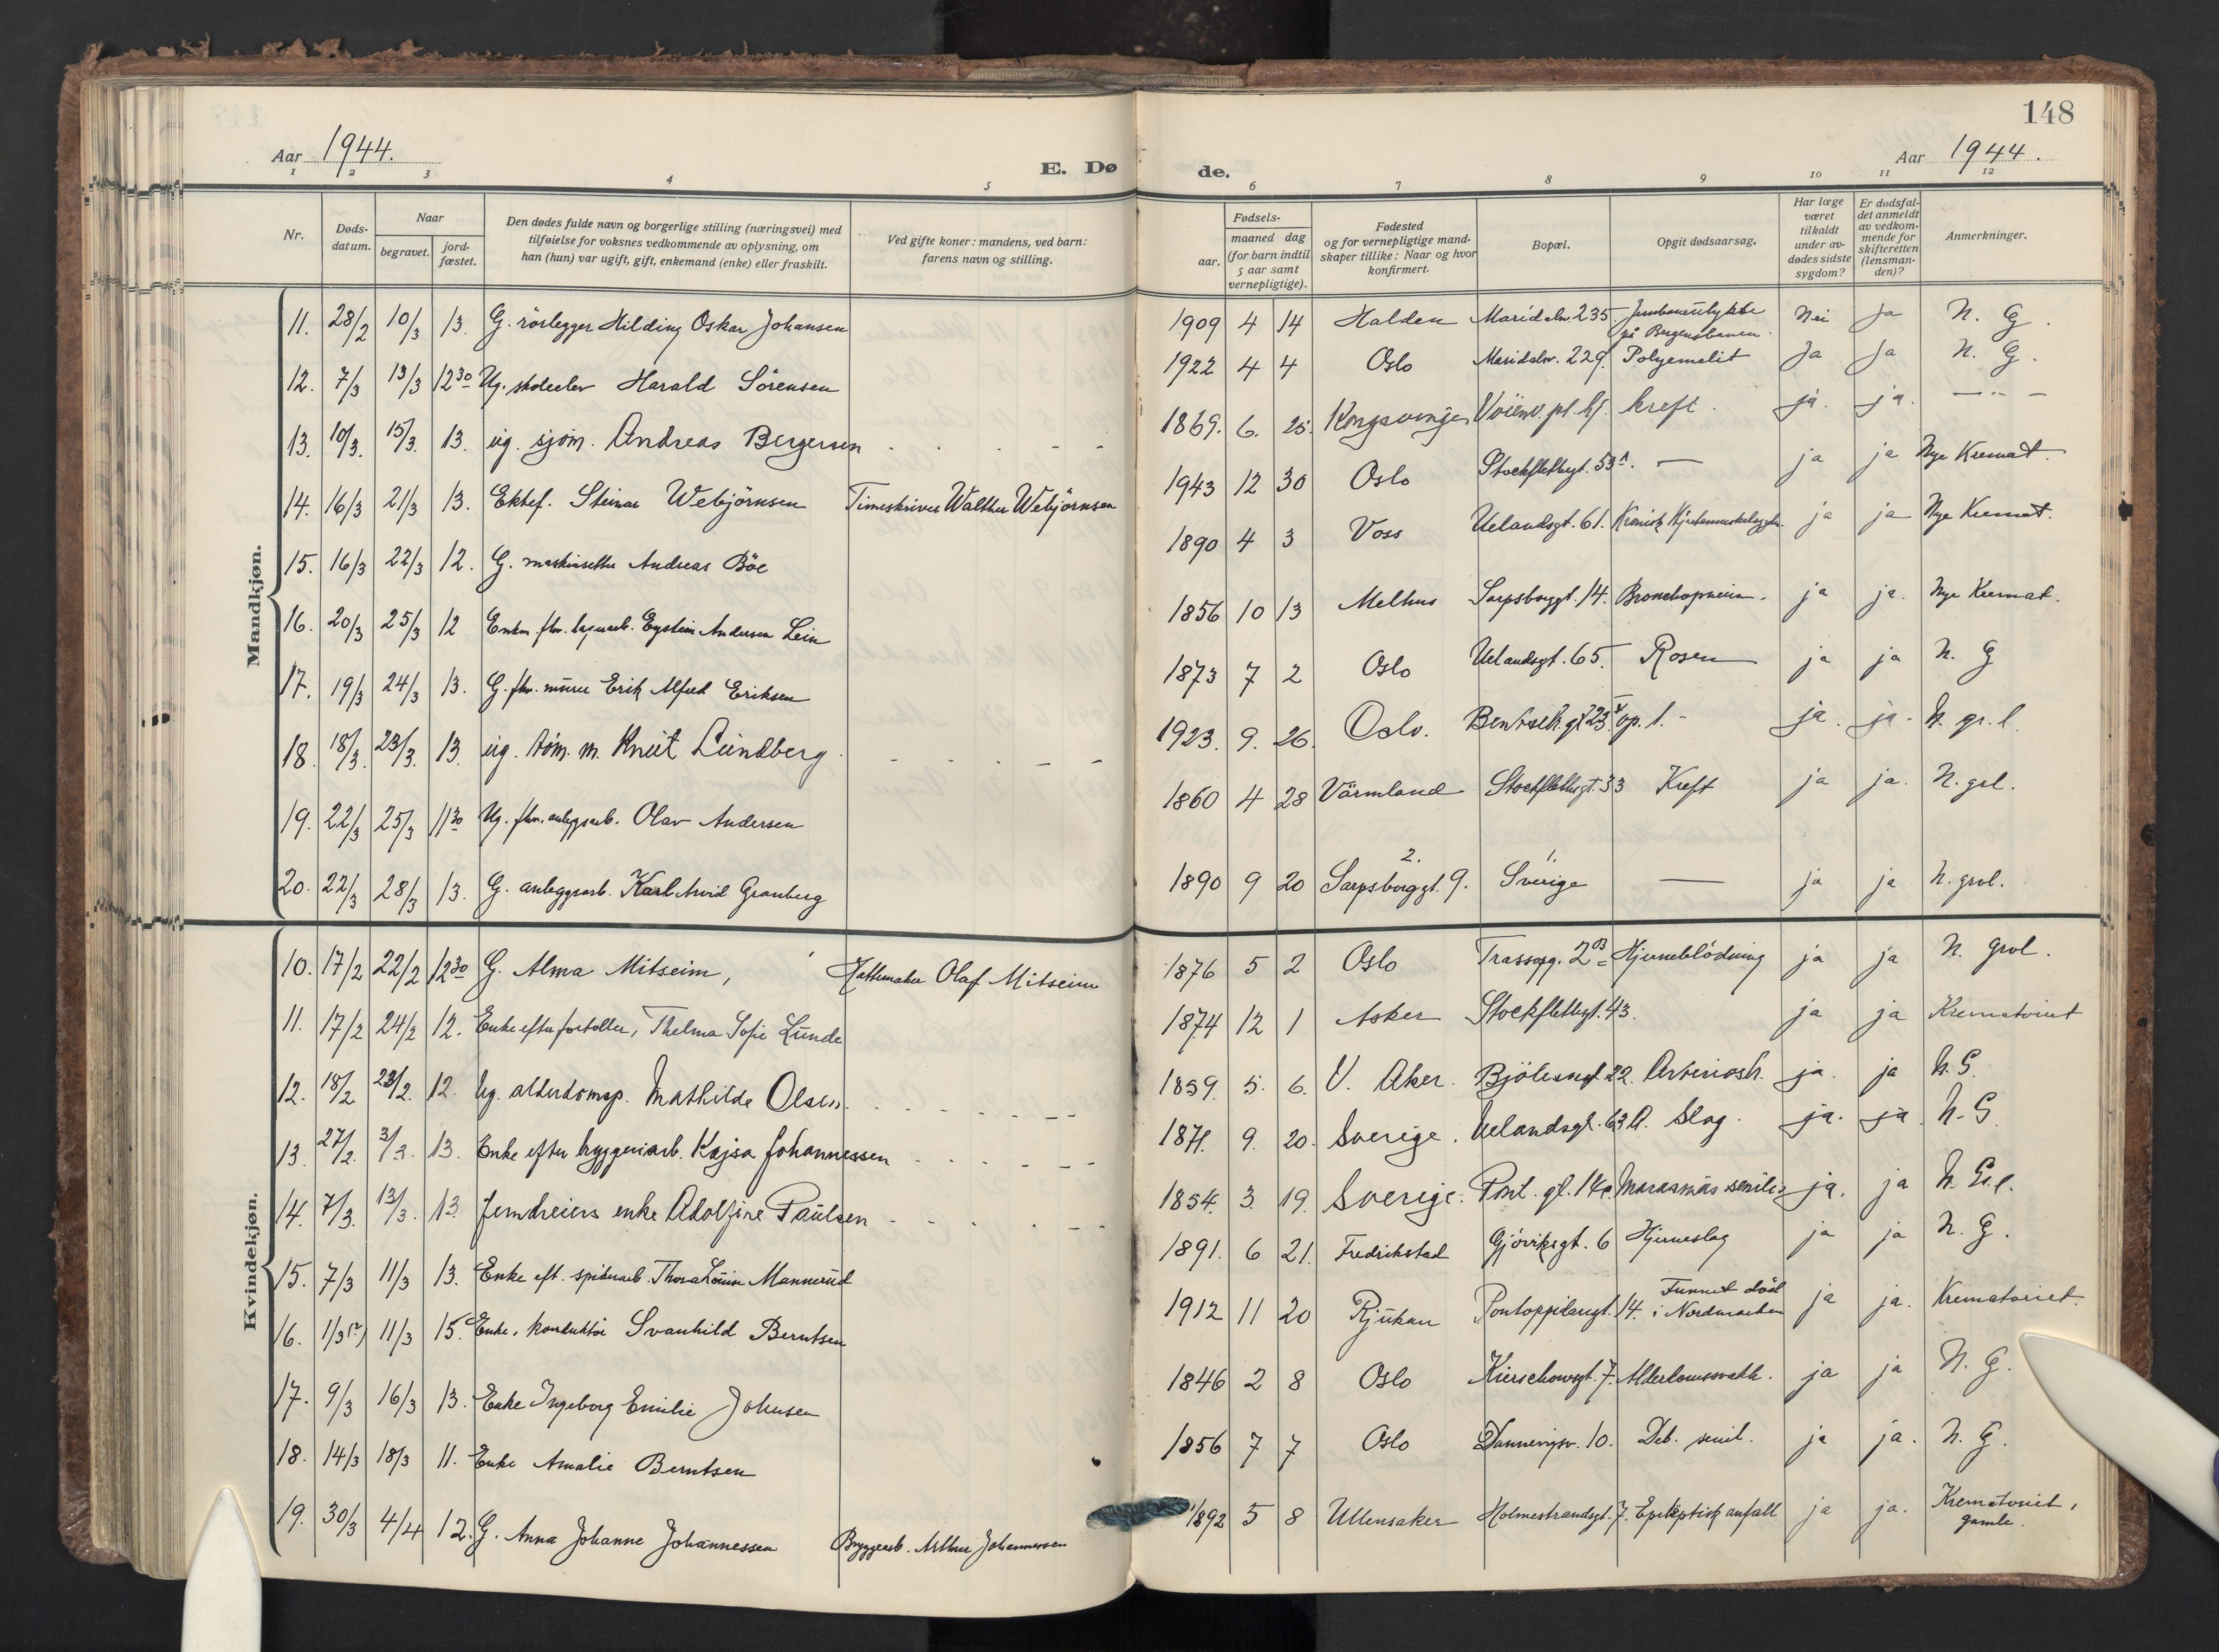 148
Aar 1944.
E. Dø de.
Aar 1944.
1 2 3 4 5 6 7 8 9 10 11 12
Nr.
Døds-
datum.
Naar
begravet.
jord-
fæstet.
Den dødes fulde navn og borgerlige stilling (næringsvei) med
tilføielse for voksnes vedkommende av oplysning, om
han (hun) var ugift, gift, enkemand (enke) eller fraskilt.
Ved gifte koner: mandens, ved barn:
farens navn og stilling.
Fødsels-
aar.
maaned dag
(for barn indtil
5 aar samt
vernepligtige).
Fødested
og for vernepligtige mand-
skaper tillike: Naar og hvor
konfirmert.
Bopæl.
Opgit dødsaarsag.
Har læge
været
tilkaldt
under av-
dødes sidste
sygdom?
Er dødsfal-
det anmeldt
av vedkom-
mende for
skifteretten
(lensman-
den)?
Anmerkninger.
Mandkjøn.
11. 28/2 10/3 13. G. rörlegger Hilding Oskar Johansen 1909 4 14 Halden Maridalsv. 235 Jernbaneulykke på Bergensbanen. Nei Ja N. G.
12. 7/3 13/3 12 30 Ug. skoleelev Harald Sörensen 1922 4 4 Oslo Maridalsv. 229. Polyomelit Ja Ja N. G.
13. 10/3. 15/3. 13. ug. sjöm. Andreas Bergersen . . . - - 1869. 6. 25. Kongsvinger Vöienv. pl. hj. kreft. ja. ja. — .. —
14. 16/3 21/3 13. Ektef. Steinar Webjörnsen Timeskriver Walther Webjörnsen 1943 12 30 Oslo Stockflethsgt. 53 A. — ja ja Nye Kremat.
15. 16/3 22/3 12. G. maskinsetter Andreas Böe 1890 4 3 Voss Uelandsgt. 61. Kronisk ja ja Nye Kremat.
16. 20/3 25/3 12 Enkm. fhv. Eystein Andersen Lein 1856 10 13 Melhus Sarpsborggt. 14. Bronchopneum. ja ja. Nye Kremat.
17. 19/3 24/3 13. G. fhv. murer Erik Alfred Eriksen 1873 7 2 Oslo Uelandsgt. 65. Rosen ja ja N. G
18. 18/3. 23/3. 13. ug. töm. m. Knut Lundberg. - . . - - 1923. 9. 26. Oslo. Bentseb. gt 23 V op. 1. - ja. ja. N. gr. l.
19. 22/3 25/3 11 30 Ug. fhv. anleggsarb. Olav Andersen 1860 4 28 Värmland Stockflethsgt. 33 Kreft ja ja. N. grl.
20. 22/3 28/3 13. G. anleggsarb. Karl Arvid Granberg 1890 9 20 2. Sarpsborggt. 9. 1. Sverige — ja ja N. grvl.
Kvindekjøn.
10. 17/2 22/2 12 30 G. Alma Mitseim, Hattemaker Olaf Mitseim 1876 5 2 Oslo Trassopg. 2 B Hjerneblödning ja ja N. grvl.
11. 17/2 24/2 12. Enke efter fortoller, Thelma Sofie Lunde 1874 12 1 Asker Stockflethsgt. 43. ja ja Krematoriet
12. 18/2 23/2. 12. Ug. alderdomsp. Mathilde Olsen. . - - - - 1859. 5. 6. V. Aker. Bjölsengt. 22. Arteriosk. ja. ja N. G.
13. 27/2. 3/3. 13. Enke efter bryggeriarb. Kajsa Johannessen . . . - - 1871. 9. 20. Sverige. Uelandsgt. 63 A. Slag. ja. ja N. G
14. 7/3. 13/3. 13. Jerndreiers enke Adolfine Paulsen - . . . - - 1854. 3. 19. Sverige. Pont. gt. 14 c Marasmus senilis ja. ja N. G.l.
15. 7/3 11/3 13. Enke eft. spikerarb. Thora Louise Mannerud 1891. 6 21. Fredrikstad Gjöviksgt. 6 Hjerneslag ja ja N. G.
16. 1/3 (?) 11/3 15. Enke, konduktör Svanhild Berntsen 1912 11 20 Rjukan Pontoppidansgt. 14. Funnet död i Nordmarken ja ja. Krematoriet.
17. 9/3 16/3 13. Enke Ingeborg Emilie Johnsen 1846 2 8 Oslo Kierschowsgt. 7. Alderdomssvakh. ja ja N. G.
18. 14/3 18/3 11. Enke Amalie Berntsen 1856 7 7 Oslo Dannevigsv. 10. Deb. senil. ja ja. N. G.
19. 30/3 4/4 12. G. Anna Johanne Johannessen Bryggearb. Arthur Johannessen 1892 5 8 Ullensaker Holmestrandsgt. 7. Epileptisk anfall ja ja. Krematoriet, gamle.